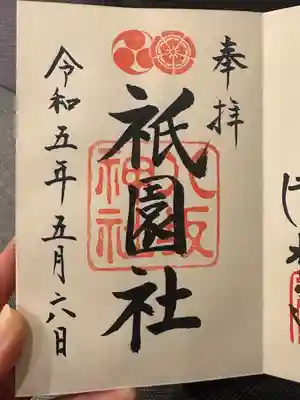 奉拝
祇園社
八坂
神社
令和五年五月六日